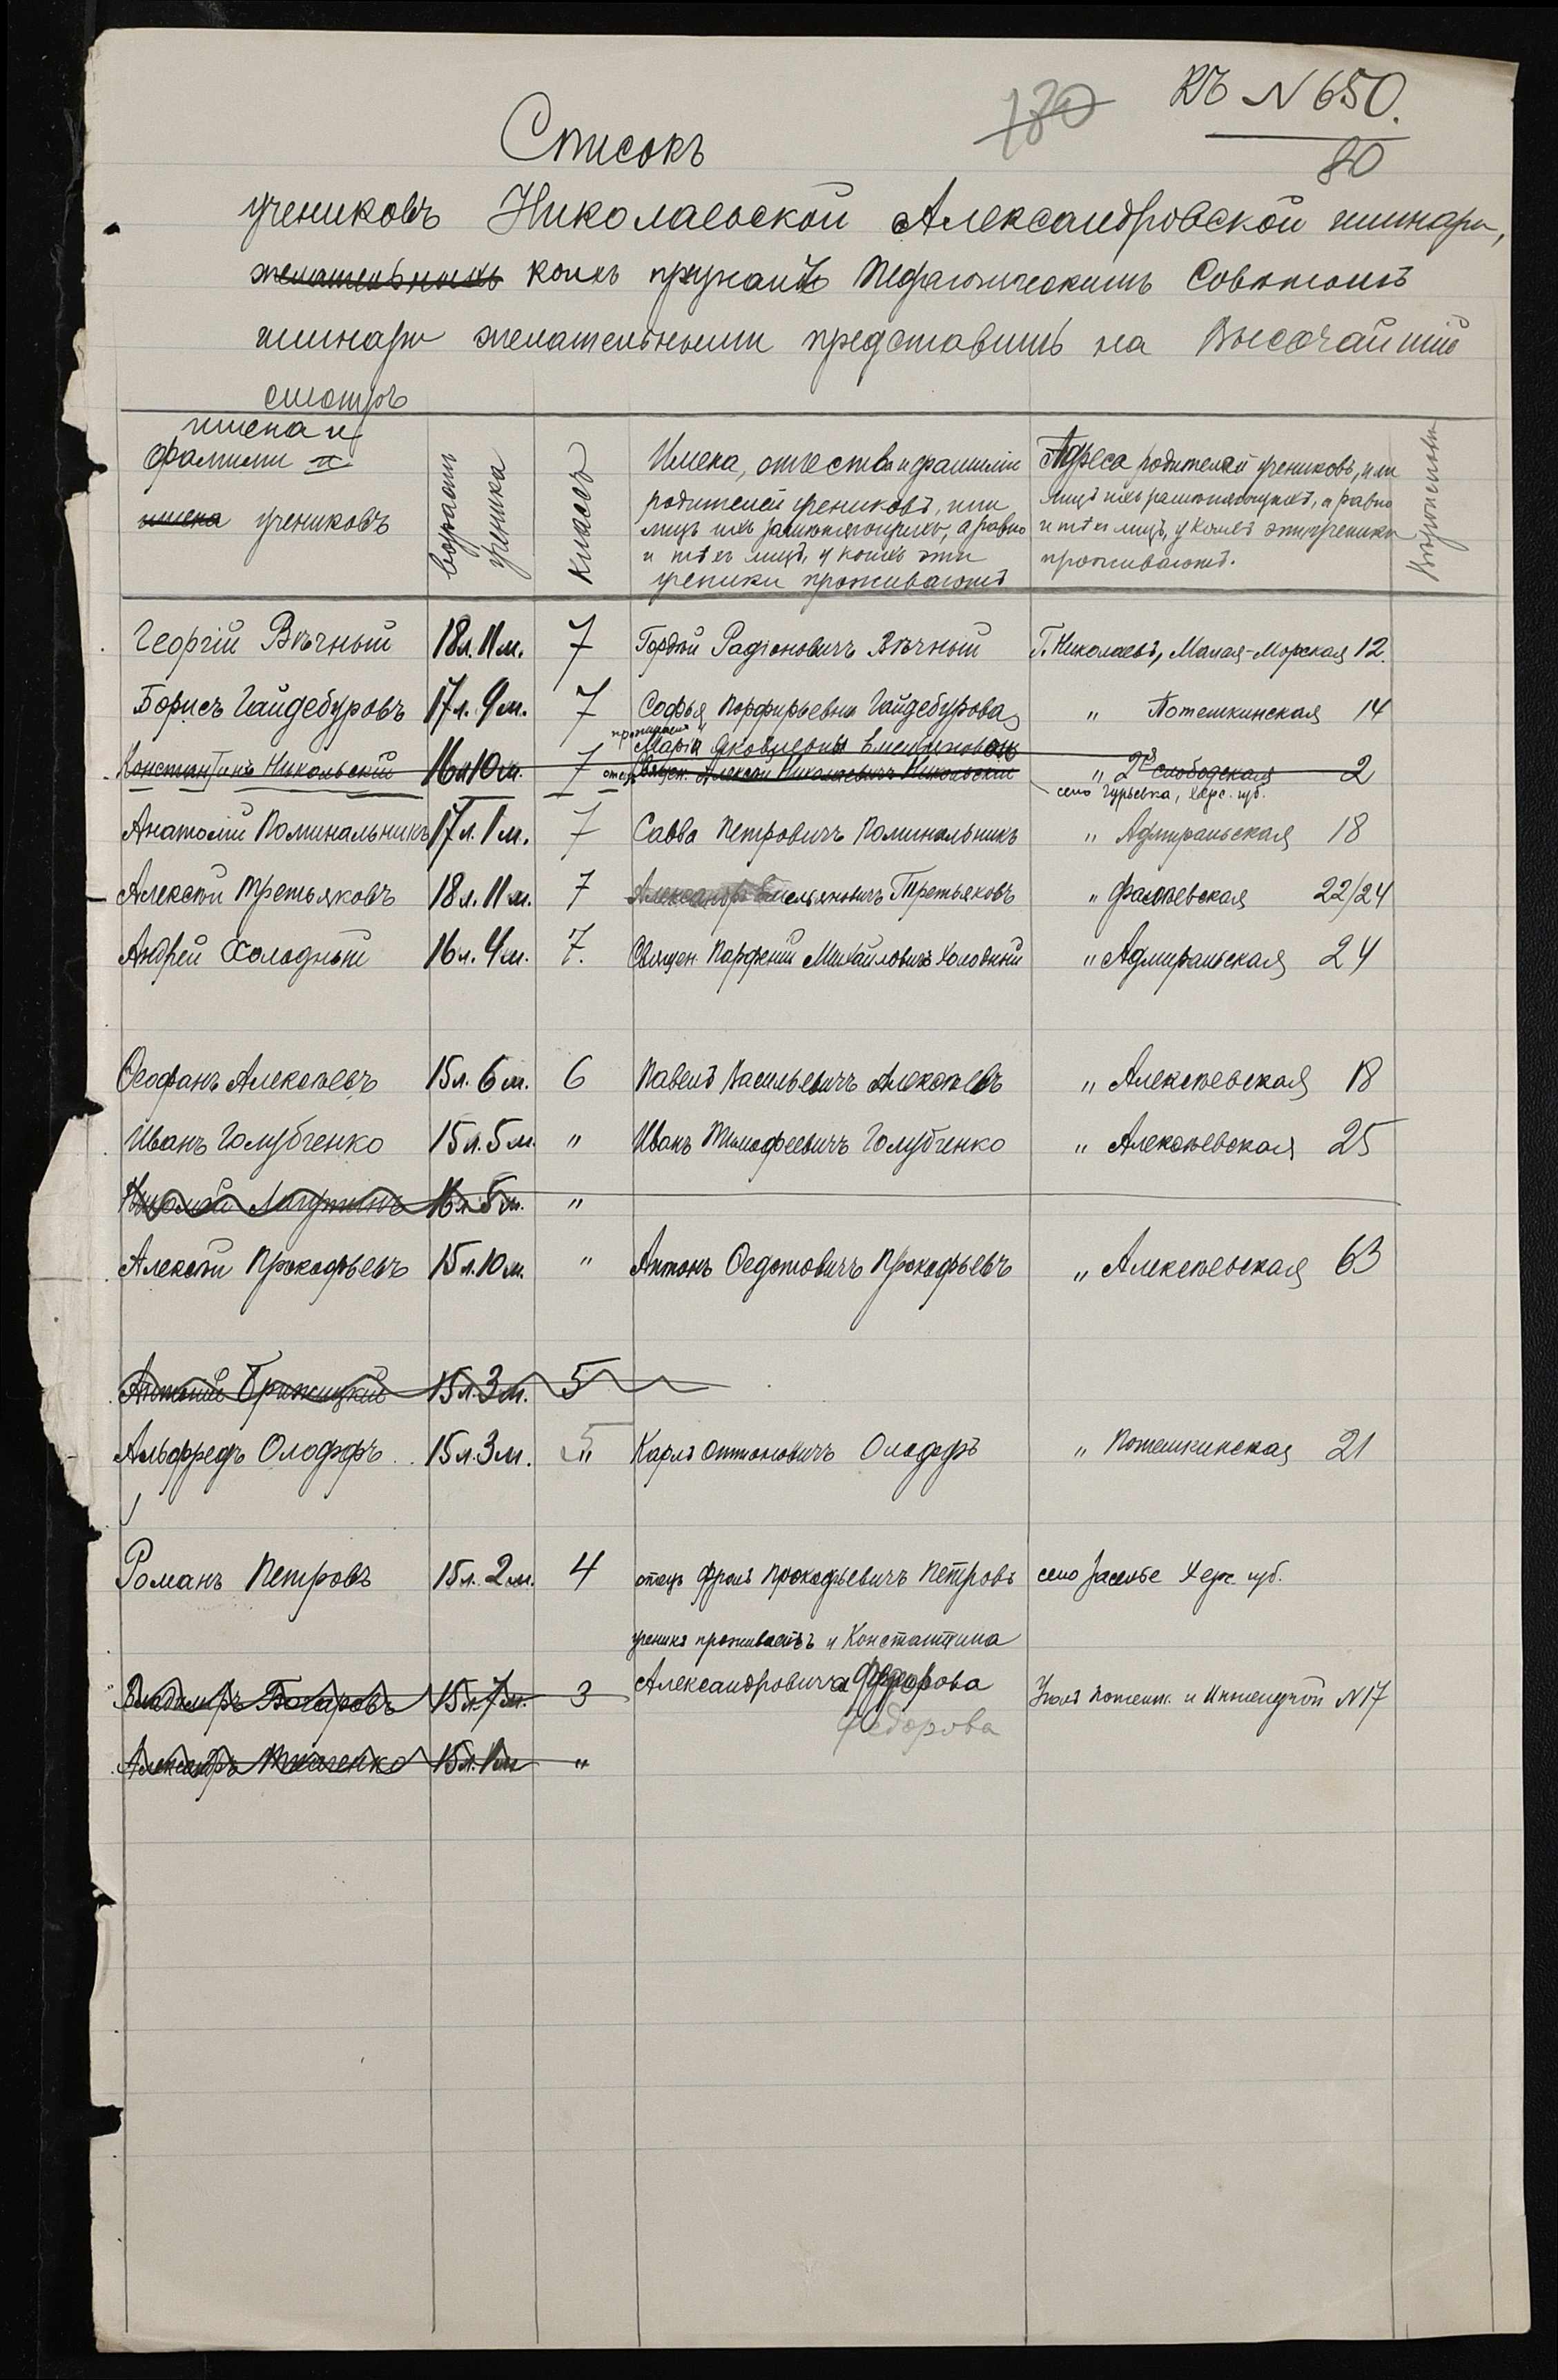 180 Къ N 650.
80
Списокъ
учениковъ Николаевской Александровской гимназіи,
желательныхъ коихъ признано Педагогическимъ Совѣтомъ
гимназіи желательными представить на Высочайшій
смотръ
имена и
фамиліи и
имена учениковъ
возрастъ
ученика
классъ
Имена, отчества и фамиліи
родителей учениковъ, или
лицъ ихъ замѣняющихъ, а равно
и тѣхъ лицъ, у коихъ эти
ученики проживаютъ
Адреса родителей учениковъ, или
лицъ ихъ замѣняющихъ, а равно
и тѣхъ лицъ, у коихъ эти ученики
проживаютъ.
Георгій Вѣчный 18 л. 11 м. 7 Гордѣй Радіоновичъ Вѣчный Г. Николаевъ, Малая-Морская 12.
Борисъ Гайдебуровъ 17 л. 9 м. 7 Софья Порфирьевна Гайдебурова „ Потемкинская 14
Марія Яковлевны
Константинъ Никольскій 16 л 10 м. 7 отецъ Священ. Алексѣй Николаевичъ Никольскій „ 2я слободская 2
село Гурьевка, Херс. губ.
Анатолій Поминальникъ 17 л. 1 м. 7 Савва Петровичъ Поминальникъ „ Адмиральская 18
Алексѣй Третьяковъ 18 л. 11 м. 7 Александръ Емельяновичъ Третьяковъ „ Фалѣевская 22/24
Андрей Холодный 16 л. 4 м. 7. Священ. Парфеній Михайловичъ Холодный „ Адмиральская 24
Ѳеофанъ Алексѣевъ 15 л. 6 м. 6 Павелъ Васильевичъ Алексѣевъ „ Алексѣевская 18
Иванъ Голубченко 15 л. 5 м. „ Иванъ Тимофеевичъ Голубченко „ Алексѣевская 25
Николай 16 л. 5 м. „
Алексѣй Прокофьевъ 15 л. 10 м. „ Антонъ Ѳедотовичъ Прокофьевъ „ Алексѣевская 63
Антоній 15 л. 3 м. 5
Альфредъ Олоффъ 15 л. 3 м. 5 „ Карлъ Оттоновичъ Олоффъ „ Потемкинская 21
Романъ Петровъ 15 л. 2 м. 4 отецъ Фролъ Прокофьевичъ Петровъ село Заселье Херс. губ.
ученикъ проживаетъ у Константина
Владимиръ Бочаровъ 15 л. 7 м. 3 Александровича Федорова Уголъ Потемк. и Инженерной N 17
Федорова
Александръ Ткаченко 15 л. 1 м „